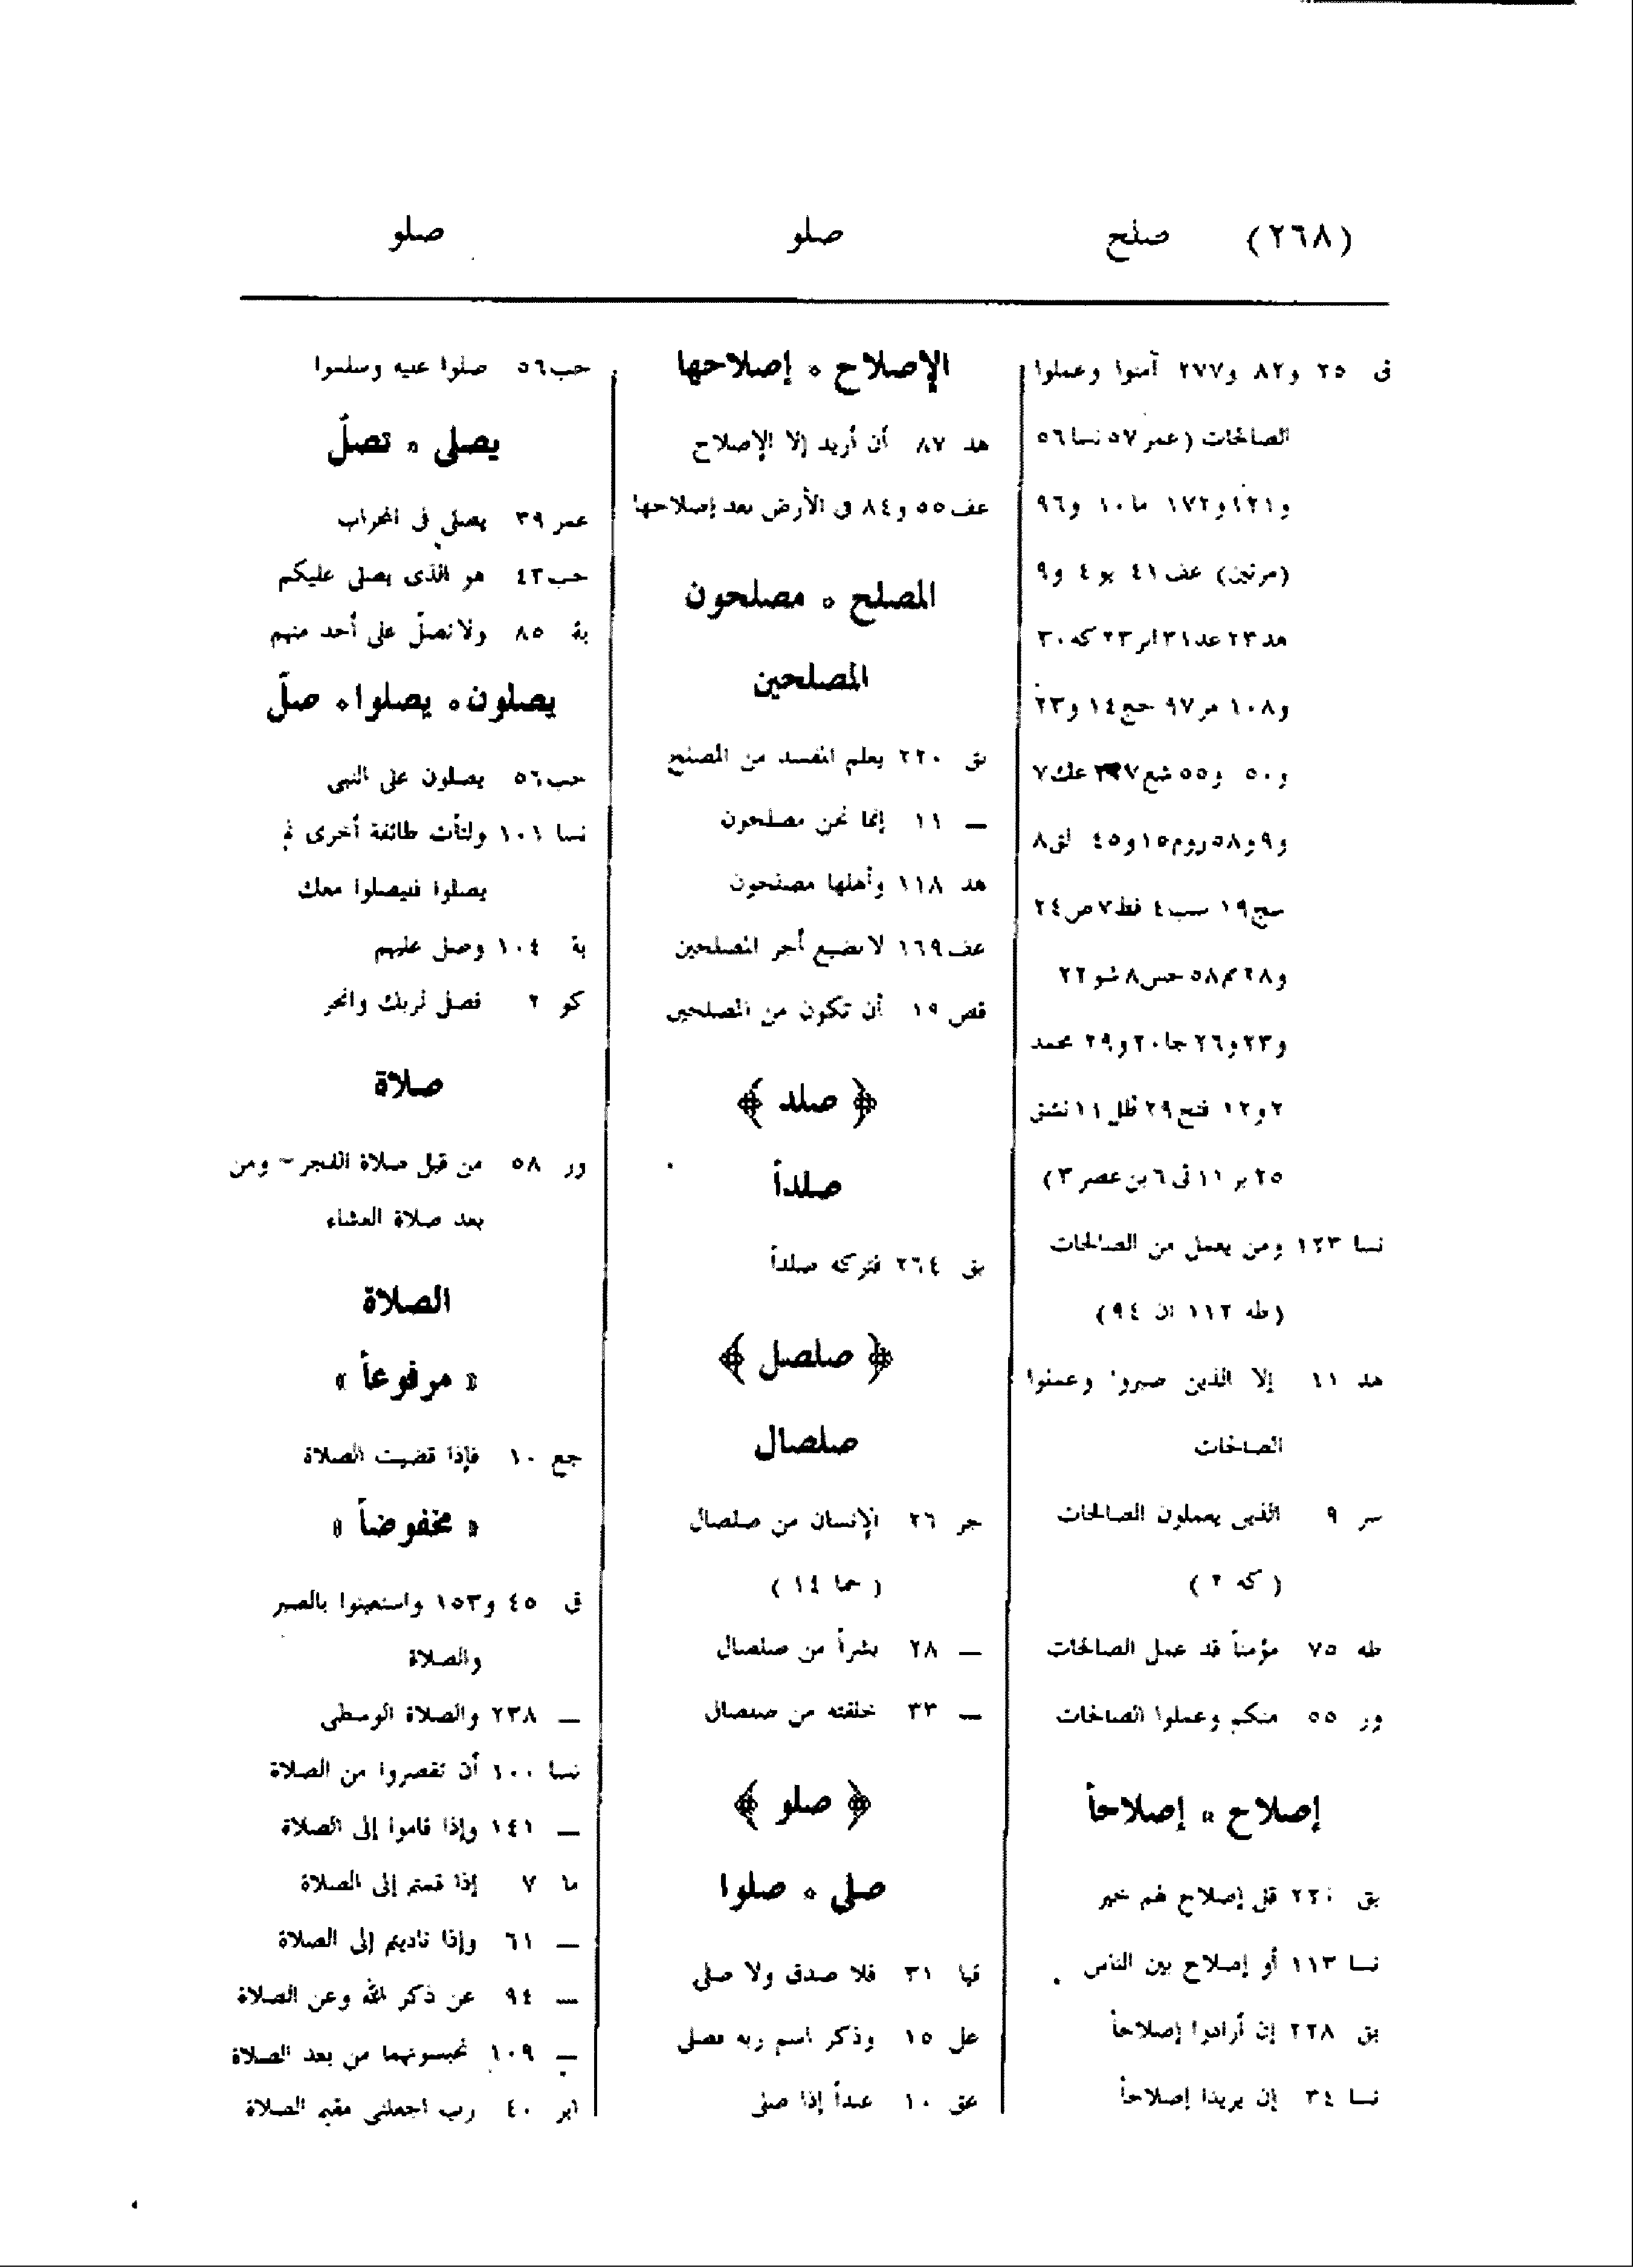 (٢٦٨) صلح صلو صلو
ق ٢٥ و٨٢ و٢٧٧ آمنوا وعملوا
الصالحات (عمر ٥٧ نسا ٥٦
و١٢١ و١٧٢ ما ١٠ و٩٦
(مرتين) عف ٤١ يو ٤ و٩
هد ٢٣ عد ٣١ ابر ٢٣ كه ٣٠
و١٠٨ مر ٩٧ حج ١٤ و٢٣
و٥٠ و٥٥ شع ٢٢٧ عك ٧
و٩ و٥٨ روم ١٥ و٤٥ لق ٨
سج ١٩ سب ٤ فط ٧ ص ٢٤
و٢٨ مم ٥٨ حس ٨ شو ٢٢
و٢٣ و٢٦ جا ٢٠ و٢٩ محمد
٢ و١٢ فتح ٢٩ طل ١١ نشق
٢٥ بر ١١ تى ٦ بن عصر ٣)
نسا ١٢٣ ومن يعمل من الصالحات
(طه ١١٢ ان ٩٤)
هد ١١ إلا الذين صبروا وعملوا
الصالحات
سر ٩ الذين يعملون الصالحات
(كه ٢)
طه ٧٥ مؤمناً قد عمل الصالحات
ور ٥٥ منكم وعملوا الصالحات
إصلاح * إصلاحاً
بق ٢٢٠ قل إصلاح لهم خير
نسا ١١٣ أو إصلاح بين الناس
بق ٢٢٨ إن أرادوا إصلاحاً
نسا ٣٤ إن يريدا إصلاحاً
الإصلاح * إصلاحها
هد ٨٧ أن أريد إلا الإصلاح
عف ٥٥ و٨٤ فى الأرض بعد إصلاحها
المصلح * مصلحون
المصلحين
بق ٢٢٠ يعلم المفسد من المصلح
— ١١ إنما نحن مصلحون
هد ١١٨ وأهلها مصلحون
عف ١٦٩ لا نضيع أجر المصلحين
قص ١٩ أن تكون من المصلحين
﴿ صلد ﴾
صلداً
بق ٢٦٤ فتركه صلداً
﴿ صلصل ﴾
صلصال
جر ٢٦ الإنسان من صلصال
(حما ١٤)
— ٢٨ بشراً من صلصال
— ٣٣ خلقته من صلصال
﴿ صلو ﴾
صلى * صلوا
قيا ٣١ فلا صدق ولا صلى
عل ١٥ وذكر اسم ربه فصلى
عق ١٠ عبداً إذا صلى
حب ٥٦ صلوا عليه وسلموا
يصلى * تصلّ
عمر ٣٩ يصلى فى المحراب
حب ٤٣ هو الذى يصلى عليكم
بة ٨٥ ولا تصلّ على أحد منهم
يصلون * يصلوا * صلّ
حب ٥٦ يصلون على النبى
نسا ١٠١ ولتأت طائفة أخرى لم
يصلوا فليصلوا معك
بة ١٠٤ وصل عليهم
كو ٢ فصل لربك وانحر
صلاة
ور ٥٨ من قبل صلاة الفجر ~ ومن
بعد صلاة العشاء
الصلاة
« مرفوعاً »
جع ١٠ فإذا قضيت الصلاة
« مخفوضاً »
ق ٤٥ و١٥٣ واستعينوا بالصبر
والصلاة
— ٢٣٨ والصلاة الوسطى
نسا ١٠٠ أن تقصروا من الصلاة
— ١٤١ وإذا قاموا إلى الصلاة
ما ٧ إذا قمتم إلى الصلاة
— ٦١ وإذا ناديتم إلى الصلاة
— ٩٤ عن ذكر الله وعن الصلاة
— ١٠٩ تحبسونهما من بعد الصلاة
ابر ٤٠ رب اجعلنى مقيم الصلاة